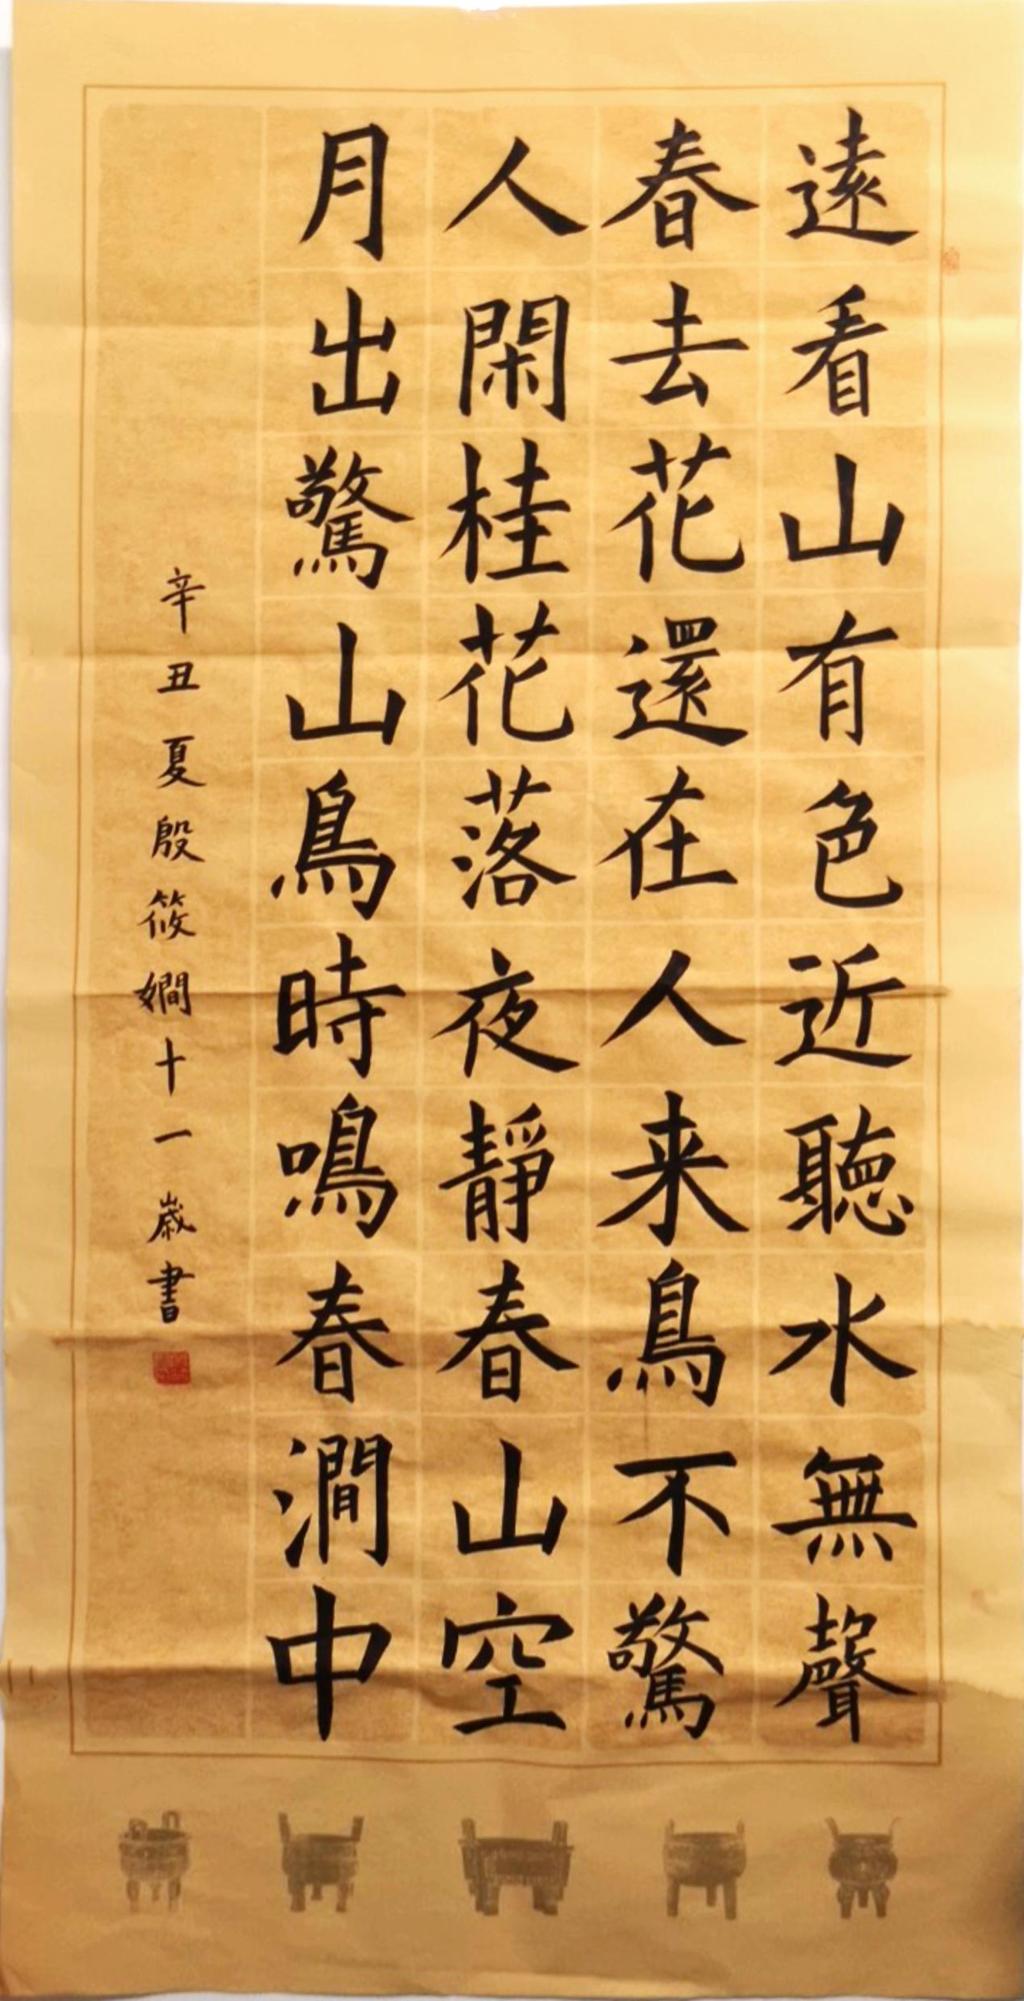 遠看山有色近聽水無聲
春去花還在人来鳥不驚
人閑桂花落夜靜春山空
月出驚山鳥時鳴春澗中
辛丑夏殷筱嫺十一歲書